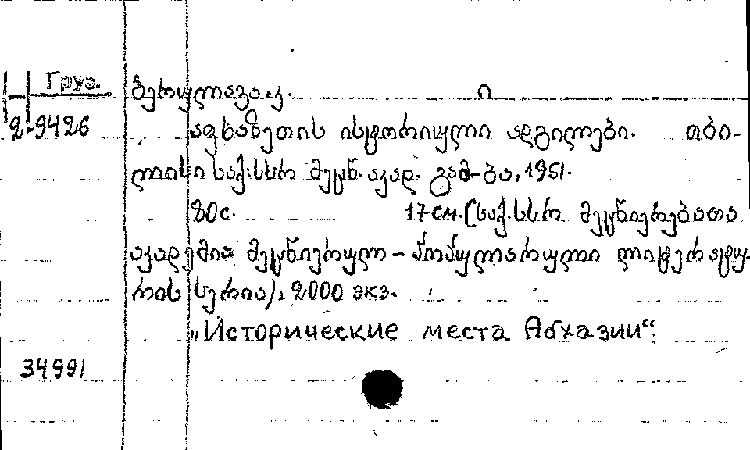 Груз.
2-9426
ბერულავა კ.
აფხაზეთის ისტორიული ადგილები. თბი-
ლისი საქ.სსრ მეცნ. აკად. გამ-ბა, 1951.
80с. 17 см. (საქ.სსრ მეცნიერებათა
აკადემია მეცნიერულ-პოპულარული ლიტერატუ-
რის სერია). 2000 экз.
„Исторические места Абхазии“.
34991